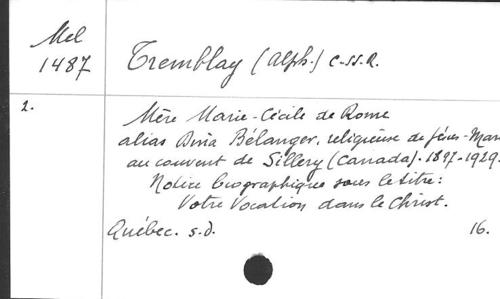 Mel
1487
Tremblay (Alph.) C.SS.R.
2.
Mère Marie-Cécile de Rome
alias Dina Bélanger, religieuse de Jésus-Mari
au couvent de Sillery (Canada). 1897-1929.
Notice biographique sous le titre:
Votre Vocation dans le Christ.
Québec. s.d.
16.